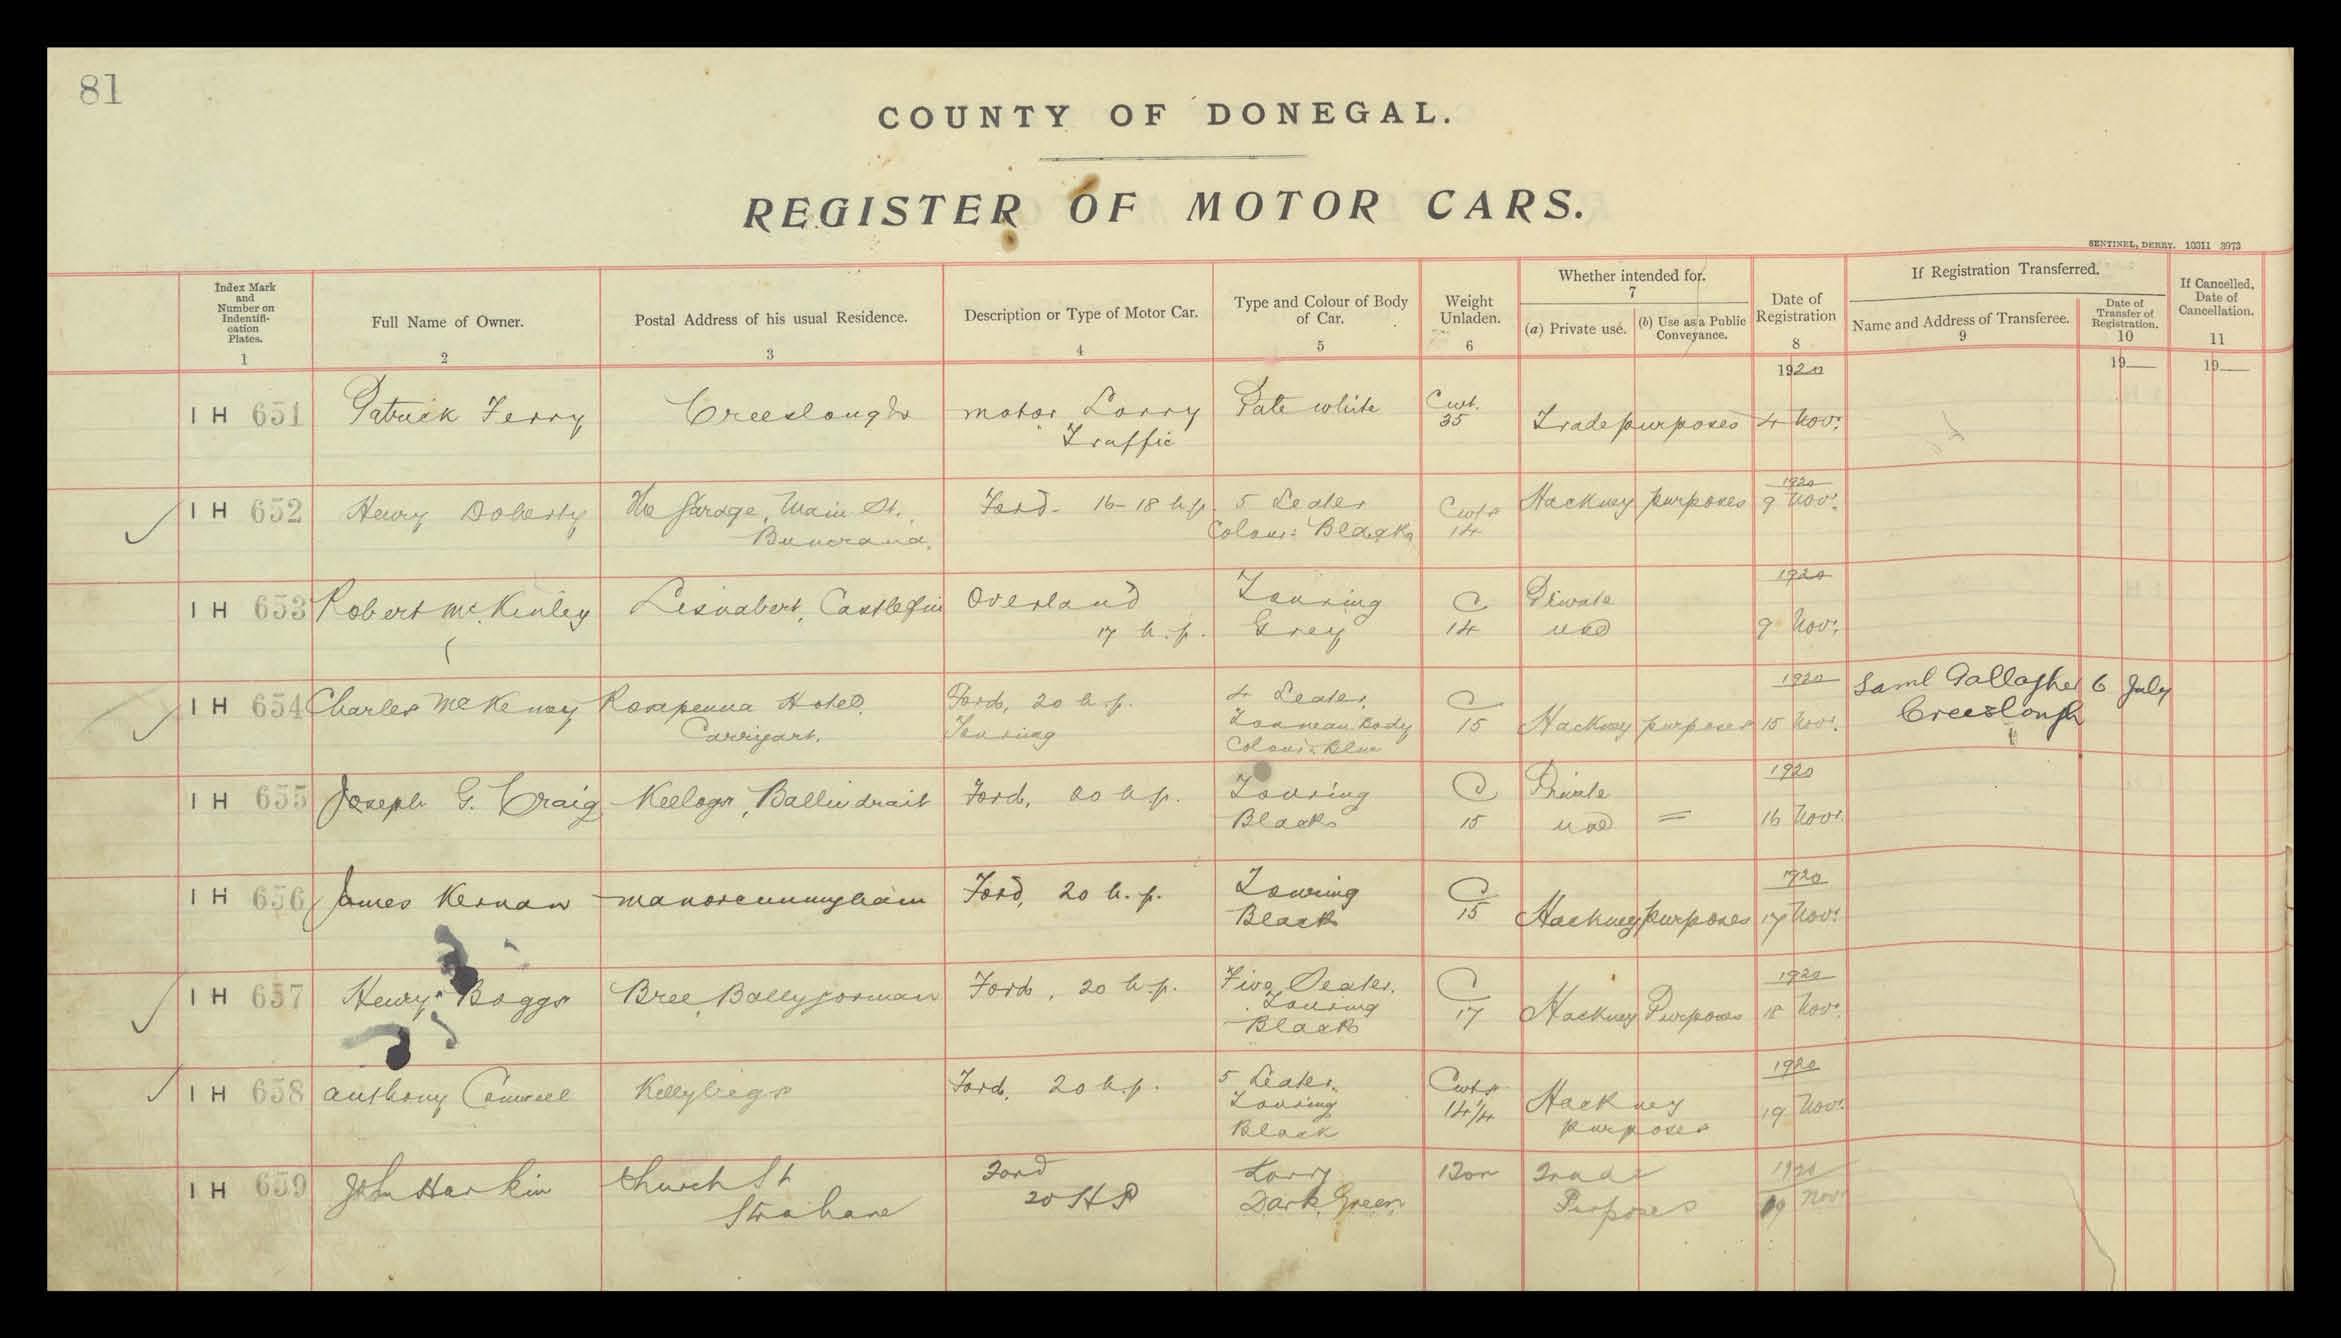 81
COUNTY OF DONEGAL.
REGISTER OF MOTOR CARS.
SENTINEL, DERRY. 10311 3973
Index Mark
and
Number on
Indentifi-
cation
Plates.
1
Full Name of Owner.
2
Postal Address of his usual Residence.
3
Description or Type of Motor Car.
4
Type and Colour of Body
of Car.
5
Weight
Unladen.
6
Whether intended for.
7
(a) Private use.
(b) Use as a Public
Conveyance.
Date of
Registration
8
If Registration Transferred.
Name and Address of Transferee.
9
Date of
Transfer of
Registration.
10
If Cancelled,
Date of
Cancellation.
11
1920
19
19
I H 651 Patrick Ferry Creeslough motor Lorry Pate white Cwt. Trade purposes 4 Nov.
Traffic 35
1920
I H 652 Henry Doherty The Garage, Main St., Ford - 16-18 h.p. 5 Seater Cwts Hackney purposes 9 Nov.
Buncrana. Colour: Black 14
1920
I H 653 Robert McKinley Lisnabert, Castlefin Overland Touring C Private
17 h.p. Grey 14 use 9 Nov.
1920
I H 654 Charles McKenney Rosapenna Hotel, Ford, 20 h.p. 4 Seater, C Saml Gallagher 6 July
Carrigart. Touring Tonneau Body 15 Hackney purposes 15 Nov. Creeslough
Colour: Blue
1920
I H 655 Joseph G. Craig Keelogs, Ballindrait Ford, 20 h.p. Touring C Private
Black 15 use = 16 Nov.
1920
I H 656 James Kernan Manorcunningham Ford, 20 h.p. Touring C
Black 15 Hackney purposes 17 Nov.
1920
I H 657 Henry Boggs Bree, Ballygorman Ford, 20 h.p. Five Seater, C
Touring 17 Hackney Purposes 18 Nov.
Black
1920
I H 658 Anthony Killybegs Ford, 20 h.p. 5 Seater, Cwts. Hackney
Touring 14/4 purposes 19 Nov.
Black
1920
I H 659 John Harkin Church St Ford Lorry 1 Ton Trade
Strabane 20 HP Dark Green Purposes 19 Nov